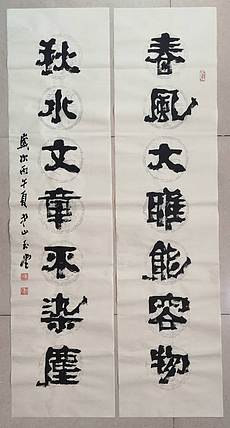 春風大雅能容物
秋水文章不染塵
歲次丙午夏山